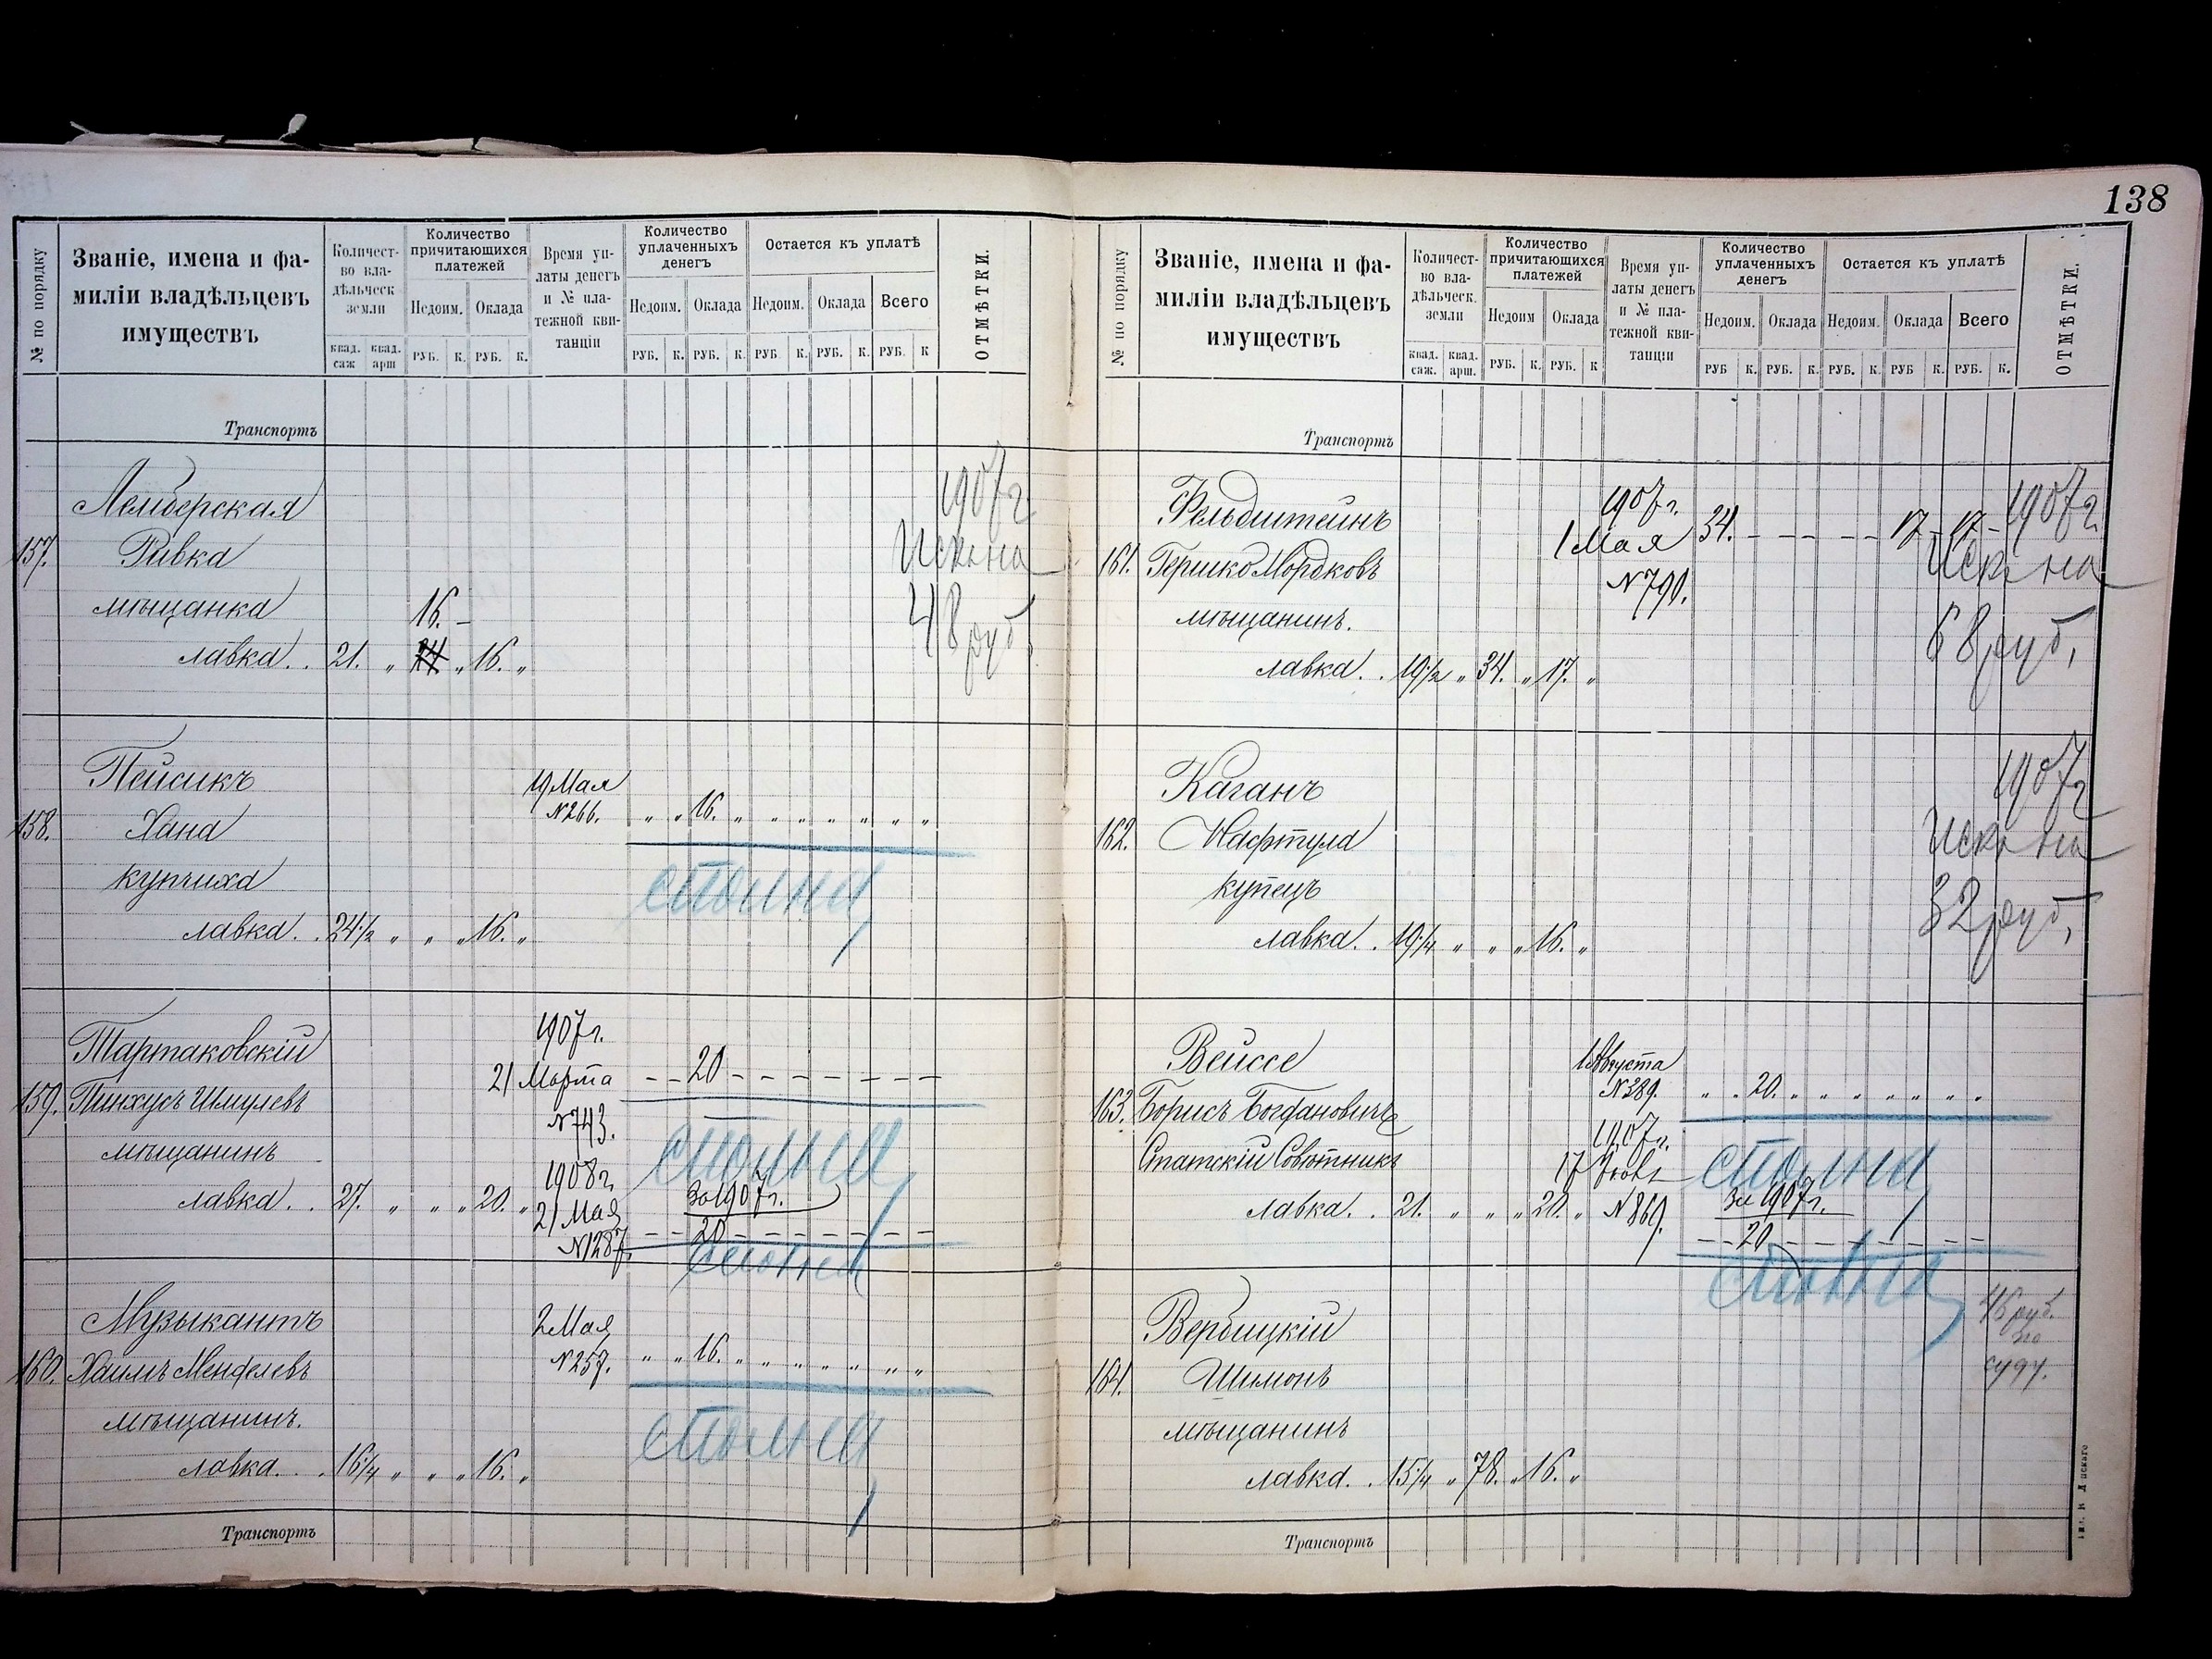 138
№ по порядку
Званіе, имена и фа-
миліи владѣльцевъ
имуществъ
Количест-
во вла-
дѣльческ
земли
квад. саж квад. арш
Количество
причитающихся
платежей
Недоим. Оклада
РУБ. К. РУБ. К.
Время уп-
латы денегъ
и № пла-
тежной кви-
танціи
Количество
уплаченныхъ
денегъ
Недоим. Оклада
РУБ. К. РУБ. К.
Остается къ уплатѣ
Недоим. Оклада Всего
РУБ К. РУБ. К. РУБ. К
ОТМѢТКИ.
Транспортъ
Лемберская
157. Ривка
мѣщанка 16. –
лавка. . 21. „ „ 16. „
1907 г
Искъ на
48 руб.
Пейсикъ
158. Хана
купчиха
лавка. . 24 1/2 „ „ „ 16. „
19 Мая
N 266. „ „ 16. „ „ „ „ „ „ „
Тартаковскій
159. Пинхусъ Шмулевъ
мѣщанинъ
лавка. . 27. „ „ „ 20. „
1907 г.
21 Марта – – 20 – – – – – – –
N 743.
1908 г.
21 Мая
N 1287.
За 1907 г.
– – 20 – – – – – – –
Музыкантъ
160. Хаимъ Менделевъ
мѣщанинъ.
лавка. . . 16 1/4 „ „ „ 16. „
2 Мая
N 257. „ „ 16. „ „ „ „ „ „ „
Транспортъ
№ по порядку
Званіе, имена и фа-
миліи владѣльцевъ
имуществъ
Количест-
во вла-
дѣльческ.
земли
квад. саж. квад. арш.
Количество
причитающихся
платежей
Недоим Оклада
РУБ. К. РУБ. К
Время уп-
латы денегъ
и № пла-
тежной кви-
танціи
Количество
уплаченныхъ
денегъ
Недоим. Оклада
РУБ К. РУБ. К.
Остается къ уплатѣ
Недоим. Оклада Всего
РУБ. К. РУБ К. РУБ. К.
ОТМѢТКИ.
Транспортъ
Фельдштейнъ
161. Гершко Мордковъ
мѣщанинъ.
лавка. . 19 1/2 „ 34. „ 17. „
1907 г.
1 Мая 34. – – – – – 17 – 17 –
N 790.
1907 г.
Искъ на
68 руб.
Каганъ
162. Нафтула
купецъ
лавка. . 19 1/4 „ „ „ 16. „
1907 г
Искъ на
32 руб.
Вейссе
163. Борисъ Богдановичъ
Статскій Совѣтникъ
лавка. . 21. „ „ „ 20. „
1 Августа
N 389. „ „ 20. „ „ „ „ „ „ „
1907 г.
N 869.
За 1907 г.
– – 20 – – – – – – –
Вербицкій
164. Шимонъ
мѣщанинъ
лавка. . 15 1/4 „ 78. „ 16. „
Транспортъ